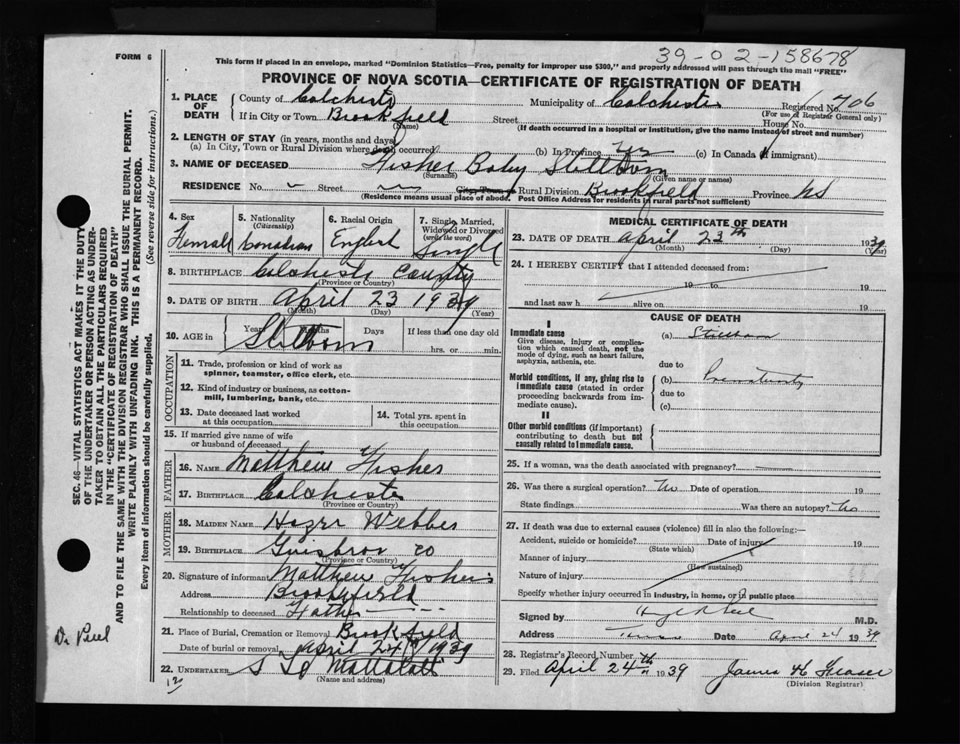 39-02-158678
FORM 6
This form if placed in an envelope, marked "Dominion Statistics—Free, penalty for improper use $300," and properly addressed will pass through the mail "FREE"
PROVINCE OF NOVA SCOTIA—CERTIFICATE OF REGISTRATION OF DEATH
1. PLACE OF DEATH County of Colchester Municipality of Colchester Registered No. 706
(For use of Registrar General only)
If in City or Town Brookfield Street House No.
(Name) (If death occurred in a hospital or institution, give the name instead of street and number)
2. LENGTH OF STAY (in years, months and days)
(a) In City, Town or Rural Division where death occurred (b) In Province Yrs (c) In Canada if immigrant)
3. NAME OF DECEASED Fisher Baby Stillborn
(Surname) (Given name or names)
RESIDENCE No. Street City Town or Rural Division Brookfield Province NS
(Residence means usual place of abode. Post Office Address for residents in rural parts not sufficient)
4. Sex Female
5. Nationality (Citizenship) Canadian
6. Racial Origin English
7. Single, Married, Widowed or Divorced (write the word) Single
8. BIRTHPLACE Colchester County
(Province or Country)
9. DATE OF BIRTH April 23 1939
(Month) (Day) (Year)
10. AGE in Years Months Days If less than one day old
Stillborn hrs. or min.
OCCUPATION
11. Trade, profession or kind of work as spinner, teamster, office clerk, etc.
12. Kind of industry or business, as cotton-mill, lumbering, bank, etc.
13. Date deceased last worked at this occupation
14. Total yrs. spent in this occupation
15. If married give name of wife or husband of deceased
FATHER
16. NAME Matthew Fisher
17. BIRTHPLACE Colchester
(Province or Country)
MOTHER
18. MAIDEN NAME Webber
19. BIRTHPLACE Co
(Province or Country)
20. Signature of informant Matthew Fisher
Address Brookfield
Relationship to deceased Father
21. Place of Burial, Cremation or Removal Brookfield
Date of burial or removal April 24 1939
22. UNDERTAKER S
(Name and address)
MEDICAL CERTIFICATE OF DEATH
23. DATE OF DEATH April 23th 1939
(Month) (Day) (Year)
24. I HEREBY CERTIFY that I attended deceased from:
19 to 19
and last saw h alive on 19
CAUSE OF DEATH
I
Immediate cause
Give disease, injury or complication which caused death, not the mode of dying, such as heart failure, asphyxia, asthenia, etc.
(a) Stillborn
due to
Morbid conditions, if any, giving rise to immediate cause (stated in order proceeding backwards from immediate cause).
(b) Prematurity
due to
(c)
II
Other morbid conditions (if important) contributing to death but not causally related to immediate cause.
25. If a woman, was the death associated with pregnancy?
26. Was there a surgical operation? No Date of operation 19
State findings Was there an autopsy? No
27. If death was due to external causes (violence) fill in also the following:—
Accident, suicide or homicide? Date of injury 19
(State which)
Manner of injury
(How sustained)
Nature of injury
Specify whether injury occurred in industry, in home, or in public place
Signed by M.D.
Address Truro Date April 24 1939
28. Registrar's Record Number
29. Filed April 24th 1939 James H Fraser
(Division Registrar)
SEC. 46—VITAL STATISTICS ACT MAKES IT THE DUTY
OF THE UNDERTAKER OR PERSON ACTING AS UNDER-
TAKER TO OBTAIN ALL THE PARTICULARS REQUIRED
IN THE "CERTIFICATE OF REGISTRATION OF DEATH"
AND TO FILE THE SAME WITH THE DIVISION REGISTRAR WHO SHALL ISSUE THE BURIAL PERMIT.
WRITE PLAINLY WITH UNFADING INK. THIS IS A PERMANENT RECORD.
Every item of information should be carefully supplied. (See reverse side for instructions.)